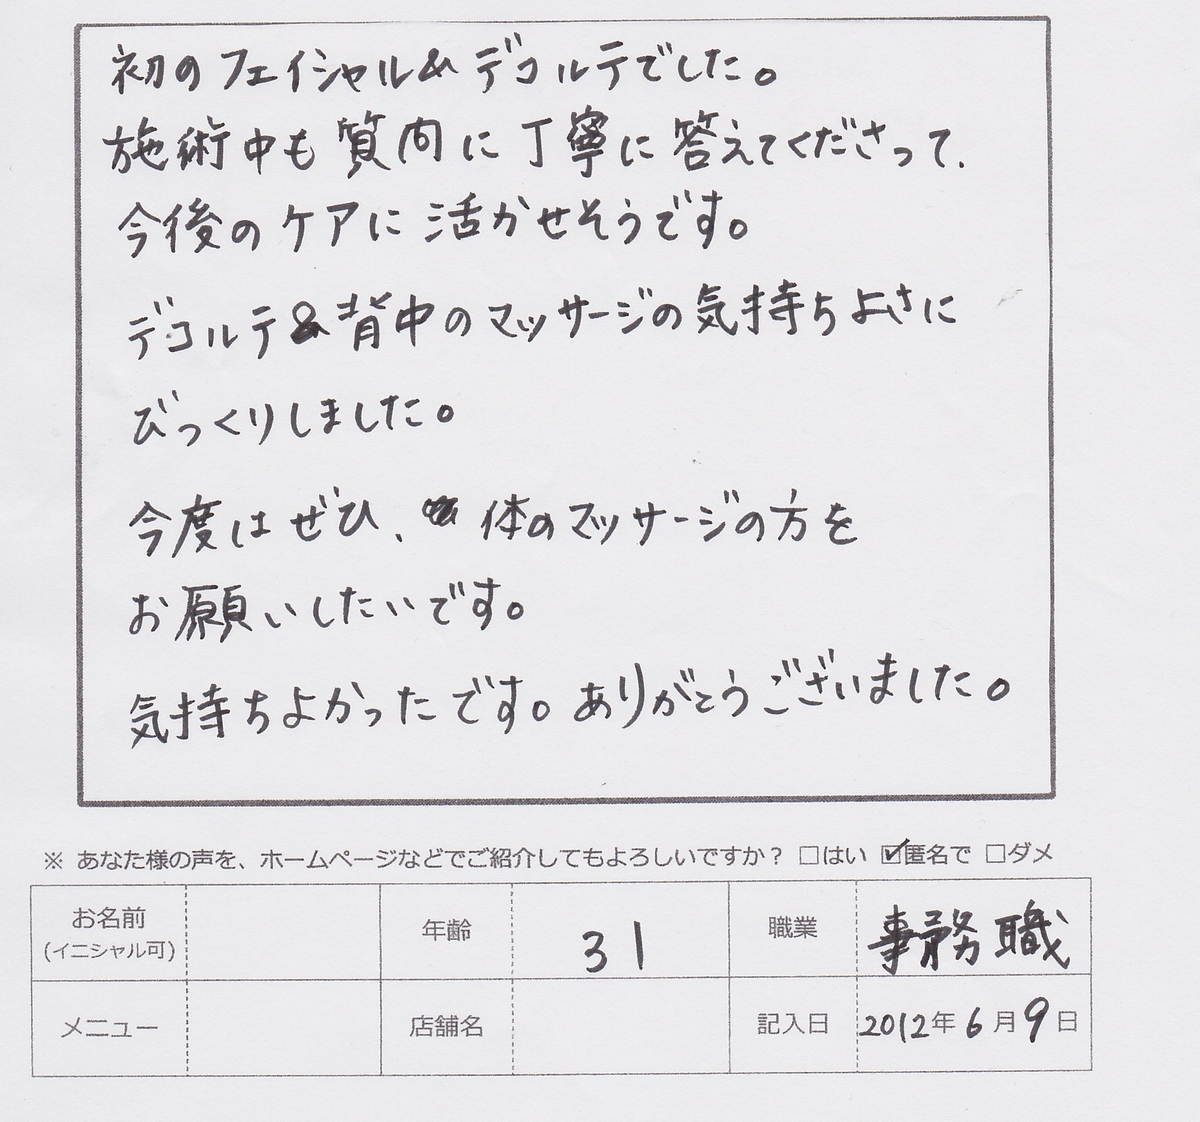 初のフェイシャル&デコルテでした。
施術中も質問に丁寧に答えてくださって、
今後のケアに活かせそうです。
デコルテ&背中のマッサージの気持ちよさに
びっくりしました。
今度はぜひ、体のマッサージの方を
お願いしたいです。
気持ちよかったです。ありがとうございました。
※ あなた様の声を、ホームページなどでご紹介してもよろしいですか? □はい ☑匿名で □ダメ
お名前 (イニシャル可) 年齢 31 職業 事務職
メニュー 店舗名 記入日 2012年6月9日